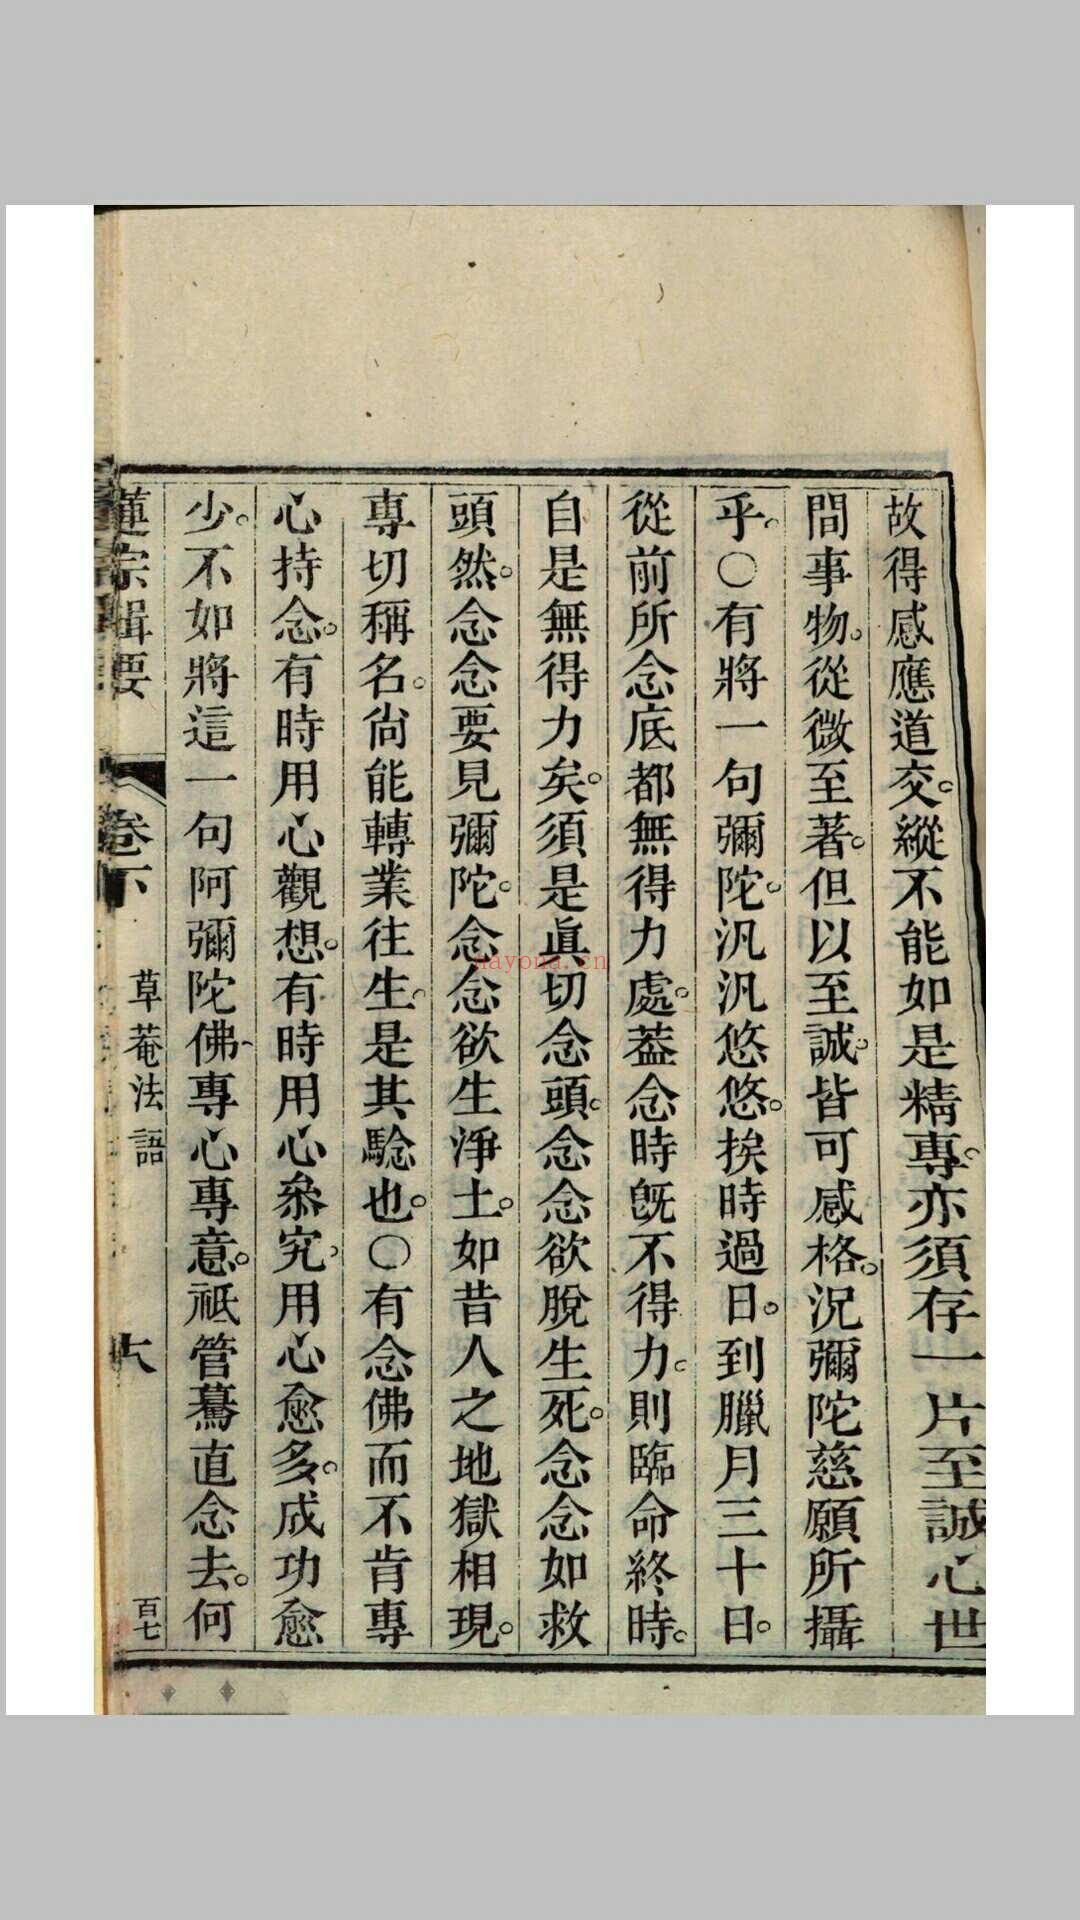 故得感應道交。縱不能如是精專。亦須存一片至誠心世
間事物。從微至著。但以至誠。皆可感格。況彌陀慈願所攝
乎。○有將一句彌陀。汎汎悠悠。挨時過日。到臘月三十日。
從前所念底都無得力處。蓋念時旣不得力。則臨命終時。
自是無得力矣。須是眞切念頭。念念欲脫生死。念念如救
頭然。念念要見彌陀。念念欲生淨土。如昔人之地獄相現。
專切稱名。尙能轉業往生。是其驗也。○有念佛而不肯專
心持念。有時用心觀想。有時用心叅究。用心愈多。成功愈
少。不如將這一句阿彌陀佛、專心專意。祗管驀直念去。何
蓮宗輯要 卷下 草菴法語 六 百七
nayona.cn